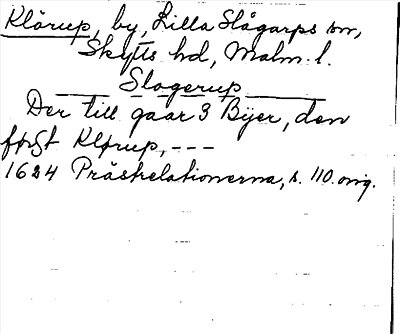 Klörup, by, Lilla Slågarps sn,
Skytts hd, Malm. l.
Slogerup
Der till gaar 3 Byer, den
först Klørup, ---
1624 Prästrelationerna, s. 110. orig.